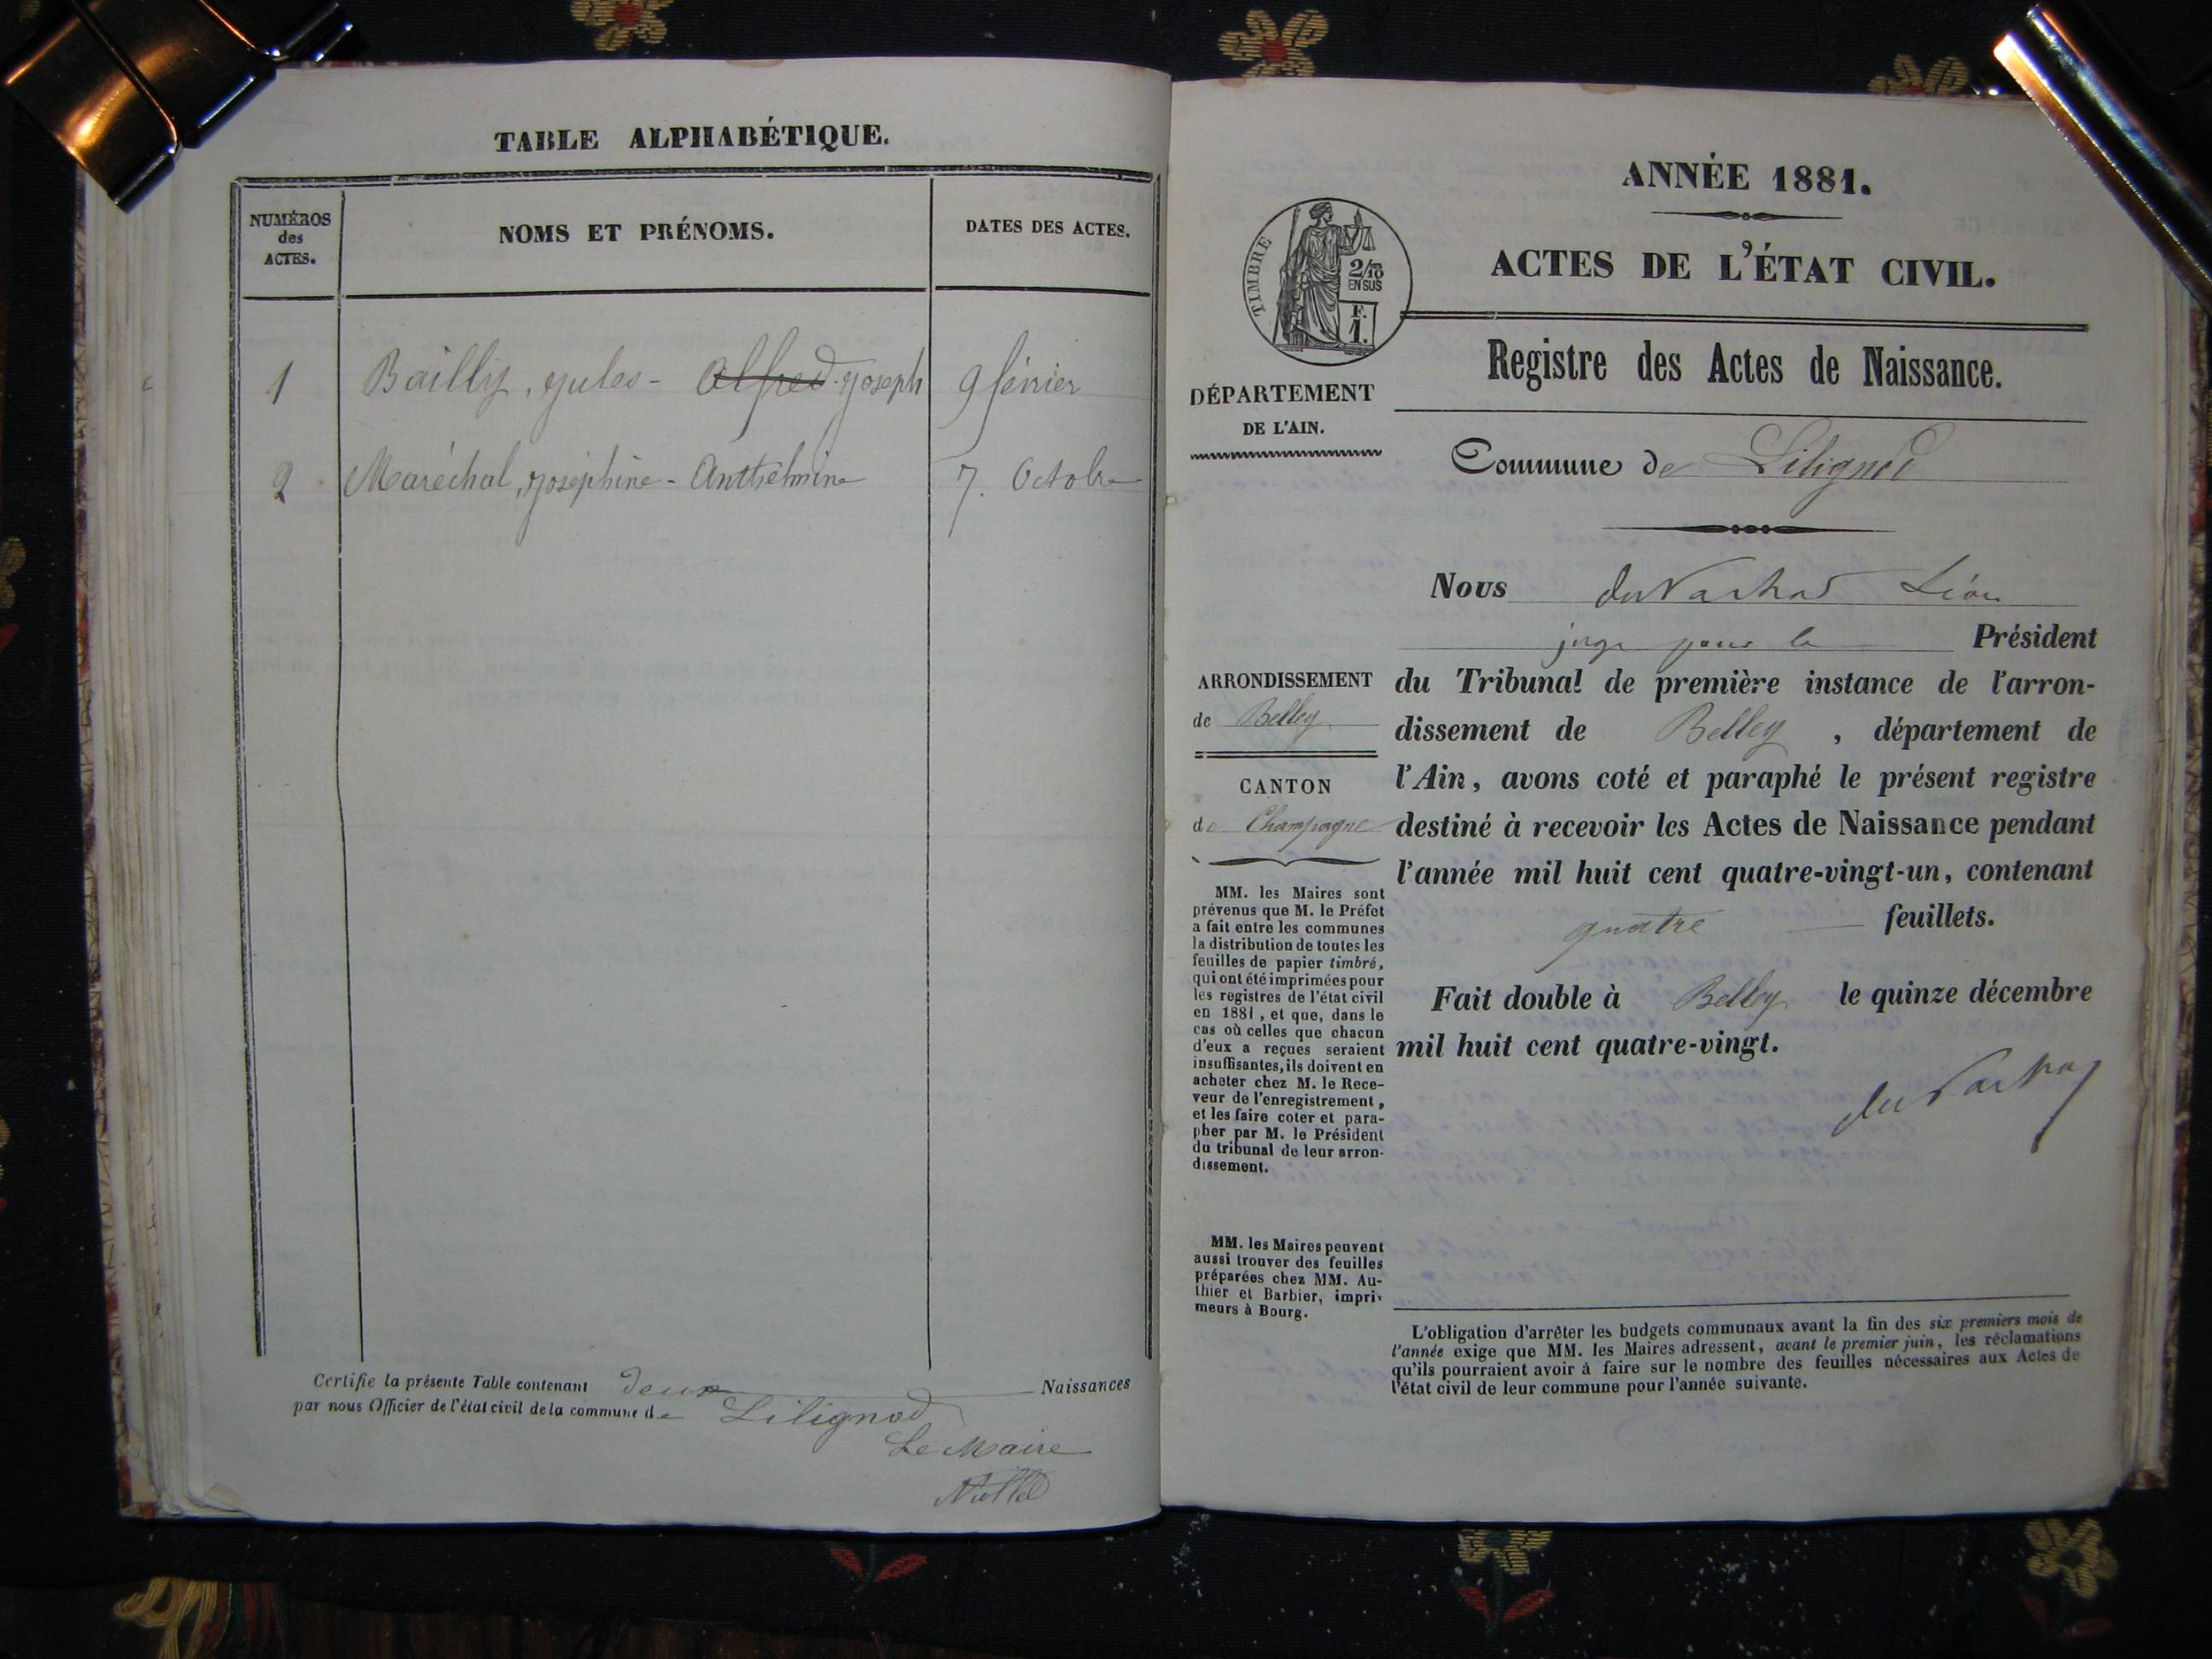 TABLE ALPHABÉTIQUE.
NUMÉROS
des
ACTES.
NOMS ET PRÉNOMS.
DATES DES ACTES.
1 Bailly, Jules - Alfred - Joseph 9 février
2 Maréchal, Joséphine - Anthelmine 7. Octobre
Certifie la présente Table contenant deux Naissances
par nous Officier de l'état civil de la commune de Lilignod
Le Maire
ANNÉE 1881.
ACTES DE L'ÉTAT CIVIL.
TIMBRE
2/10
EN SUS
F.
1.
Registre des Actes de Naissance.
DÉPARTEMENT
DE L'AIN.
Commune de Lilignod
Nous Léon
juge pour le Président
du Tribunal de première instance de l'arron-
dissement de Belley, département de
l'Ain, avons coté et paraphé le présent registre
destiné à recevoir les Actes de Naissance pendant
l'année mil huit cent quatre-vingt-un, contenant
quatre feuillets.
Fait double à Belley le quinze décembre
mil huit cent quatre-vingt.
ARRONDISSEMENT
de Belley
CANTON
de Champagne
MM. les Maires sont
prévenus que M. le Préfet
a fait entre les communes
la distribution de toutes les
feuilles de papier timbré,
qui ont été imprimées pour
les registres de l'état civil
en 1881, et que, dans le
cas où celles que chacun
d'eux a reçues seraient
insuffisantes, ils doivent en
acheter chez M. le Rece-
veur de l'enregistrement,
et les faire coter et para-
pher par M. le Président
du tribunal de leur arron-
dissement.
MM. les Maires peuvent
aussi trouver des feuilles
préparées chez MM. Au-
thier et Barbier, impri-
meurs à Bourg.
L'obligation d'arrêter les budgets communaux avant la fin des six premiers mois de
l'année exige que MM. les Maires adressent, avant le premier juin, les réclamations
qu'ils pourraient avoir à faire sur le nombre des feuilles nécessaires aux Actes de
l'état civil de leur commune pour l'année suivante.